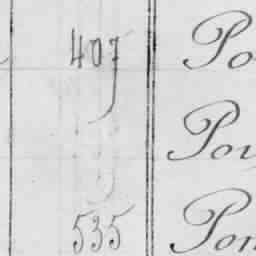 407 Po
Pou
535 Pon